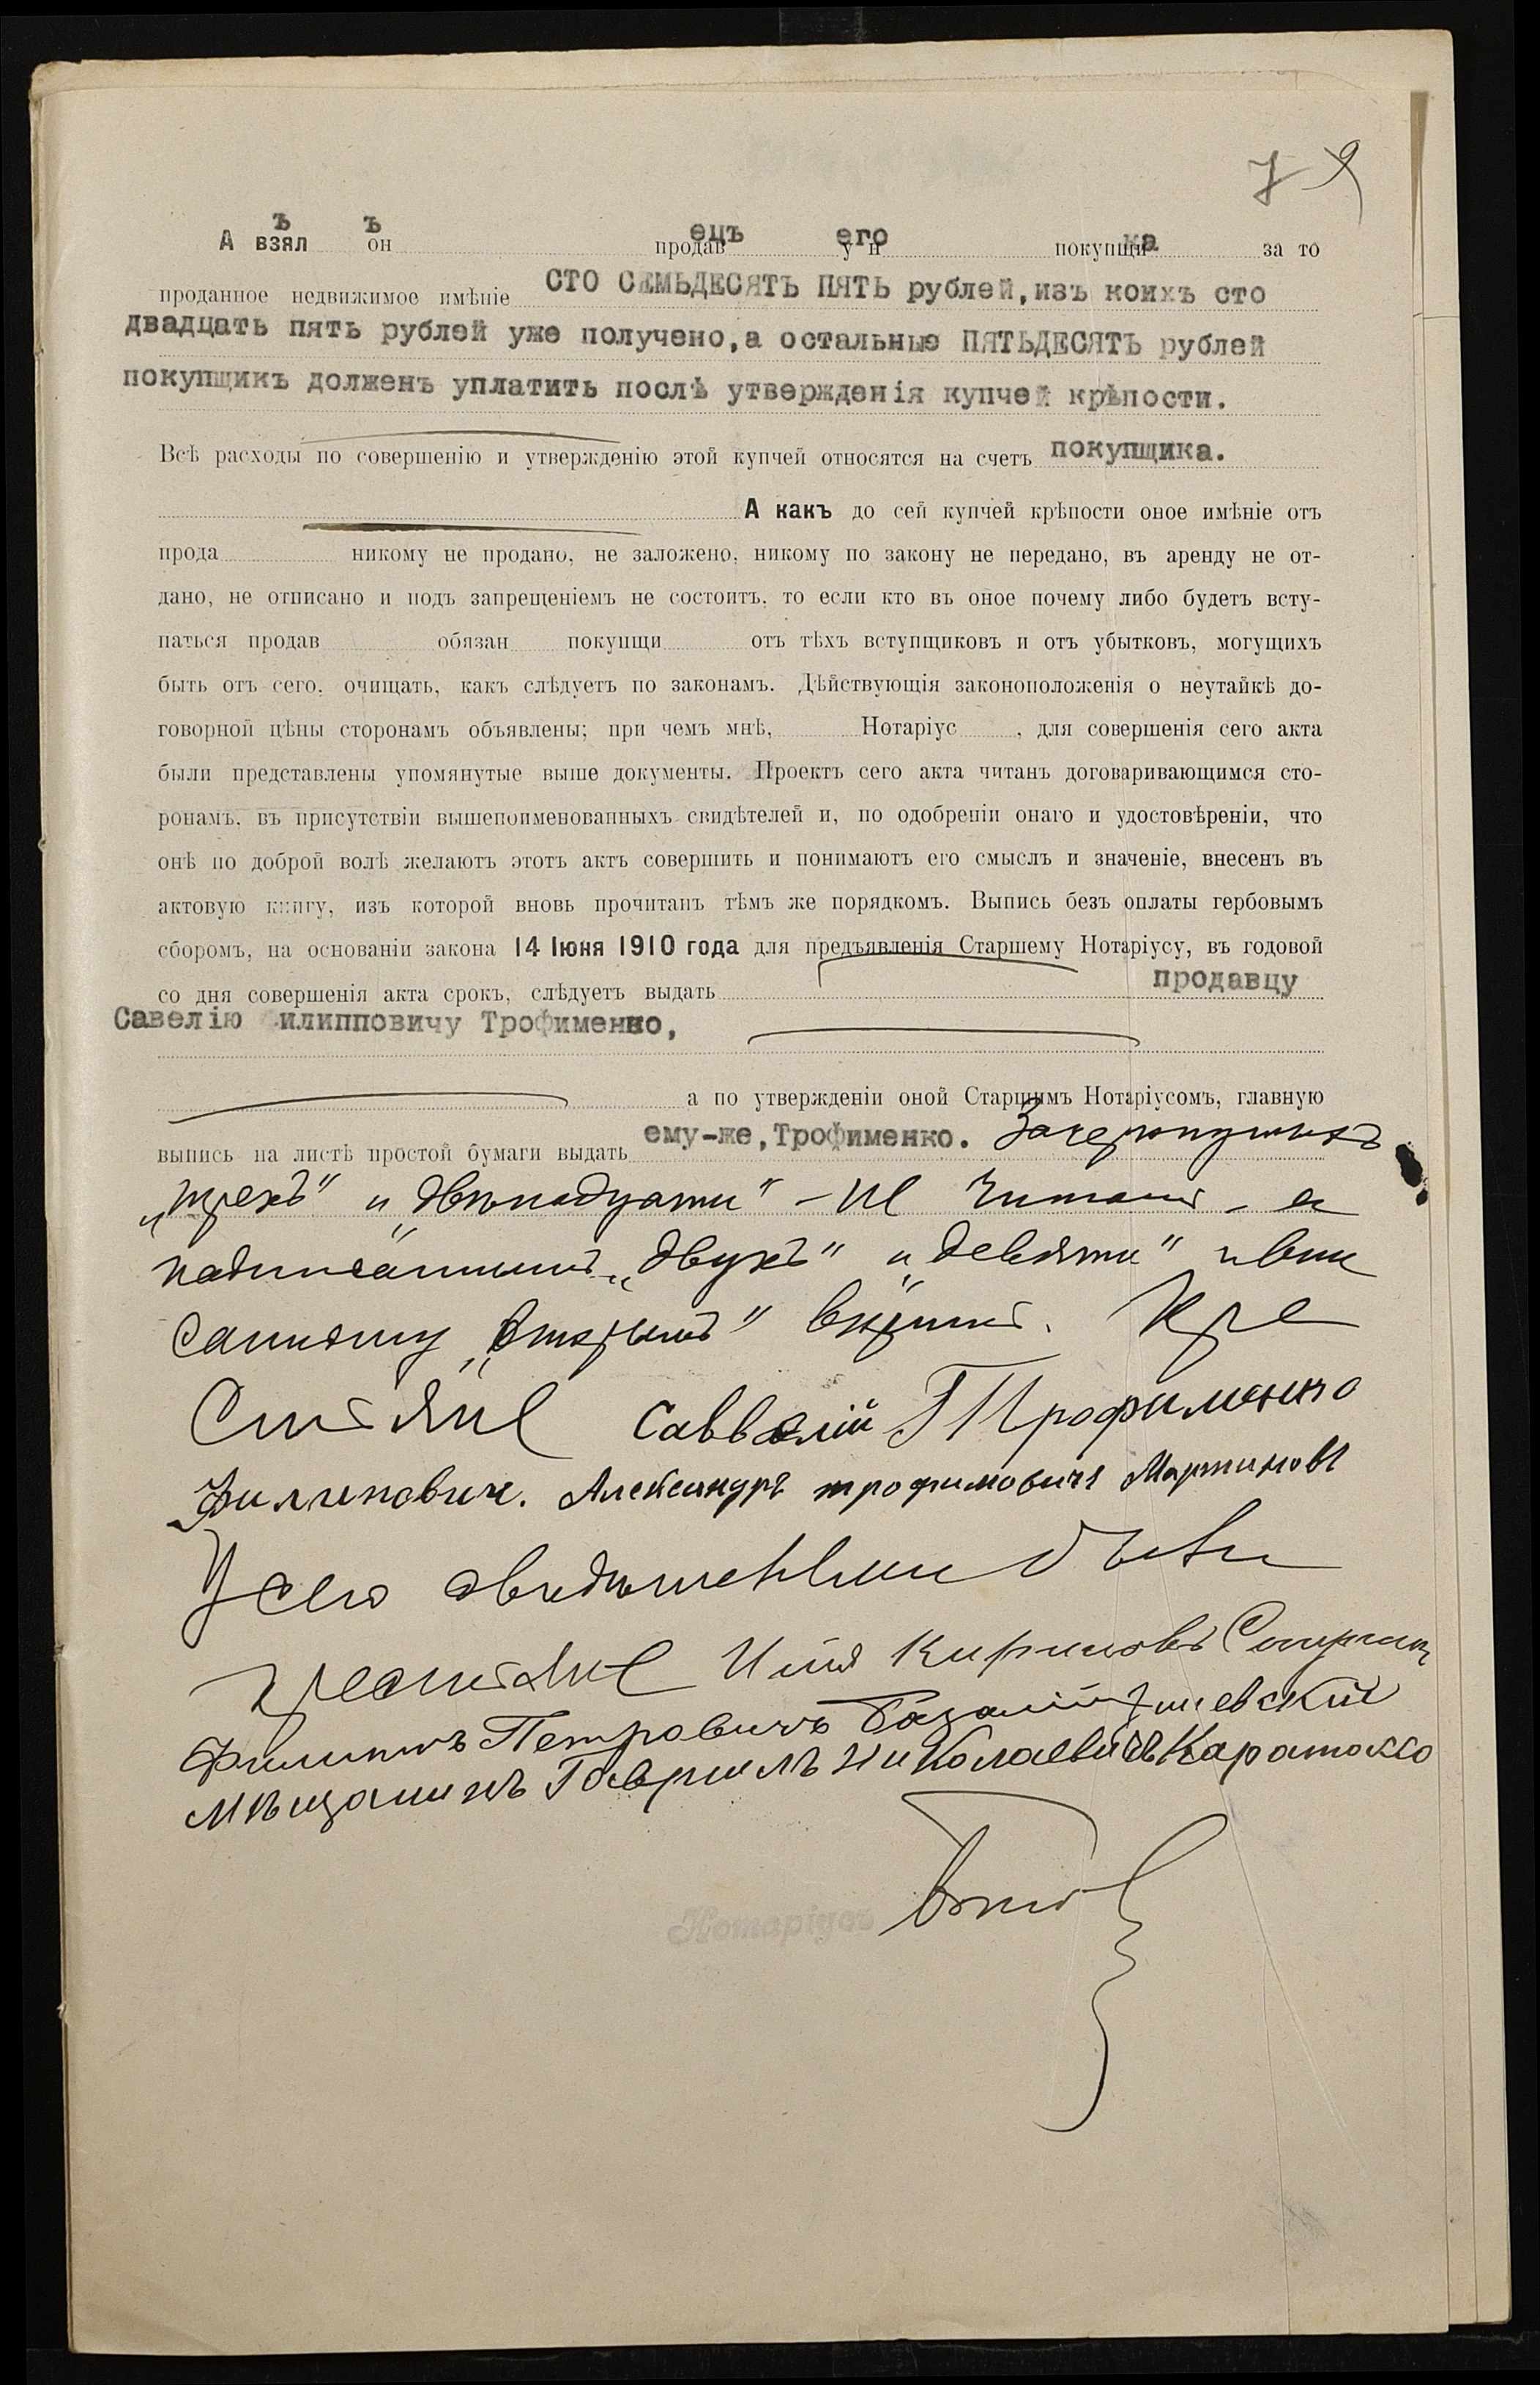 79
А взялъ онъ продавецъ у него покупщика за то
проданное недвижимое имѣніе СТО СЕМЬДЕСЯТЪ ПЯТЬ рублей, изъ коихъ сто
двадцать пять рублей уже получено, а остальные ПЯТЬДЕСЯТЪ рублей
покупщикъ долженъ уплатить послѣ утвержденія купчей крѣпости.
Всѣ расходы по совершенію и утвержденію этой купчей относятся на счетъ покупщика.
А какъ до сей купчей крѣпости оное имѣніе отъ
прода никому не продано, не заложено, никому по закону не передано, въ аренду не от-
дано, не отписано и подъ запрещеніемъ не состоитъ, то если кто въ оное почему либо будетъ всту-
паться продав обязан покупщи отъ тѣхъ вступщиковъ и отъ убытковъ, могущихъ
быть отъ сего, очищать, какъ слѣдуетъ по законамъ. Дѣйствующія законоположенія о неутайкѣ до-
говорной цѣны сторонамъ объявлены; при чемъ мнѣ, Нотаріус , для совершенія сего акта
были представлены упомянутые выше документы. Проектъ сего акта читанъ договаривающимся сто-
ронамъ, въ присутствіи вышепоименованныхъ свидѣтелей и, по одобреніи онаго и удостовѣреніи, что
онѣ по доброй волѣ желаютъ этотъ актъ совершить и понимаютъ его смыслъ и значеніе, внесенъ въ
актовую книгу, изъ которой вновь прочитанъ тѣмъ же порядкомъ. Выпись безъ оплаты гербовымъ
сборомъ, на основаніи закона 14 Іюня 1910 года для предъявленія Старшему Нотаріусу, въ годовой
со дня совершенія акта срокъ, слѣдуетъ выдать продавцу
Савелію Филипповичу Трофименко,
а по утвержденіи оной Старшимъ Нотаріусомъ, главную
выпись на листѣ простой бумаги выдать ему-же, Трофименко. Зачеркнутыхъ
„трехъ" и „двѣнадцати" – не читать, а
надписаннымъ „двухъ" и „девяти" и впи
санному „вторымъ" вѣрить. Кре
стьяне Саввелій Трофименко
Филиповичъ. Александръ трофимовичъ Мартиновъ
У сего свидѣтелями были
крестьяне Илія Кириловъ
Филиппъ Петровичъ
мѣщанинъ Гавріилъ Николаевичъ
Нотаріусъ